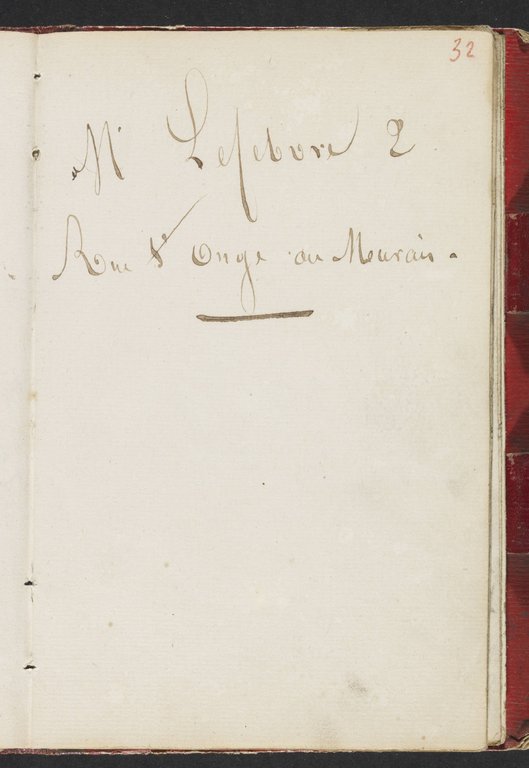 32
Mr Lefebvre 2
Rue St Onge au Meurais.